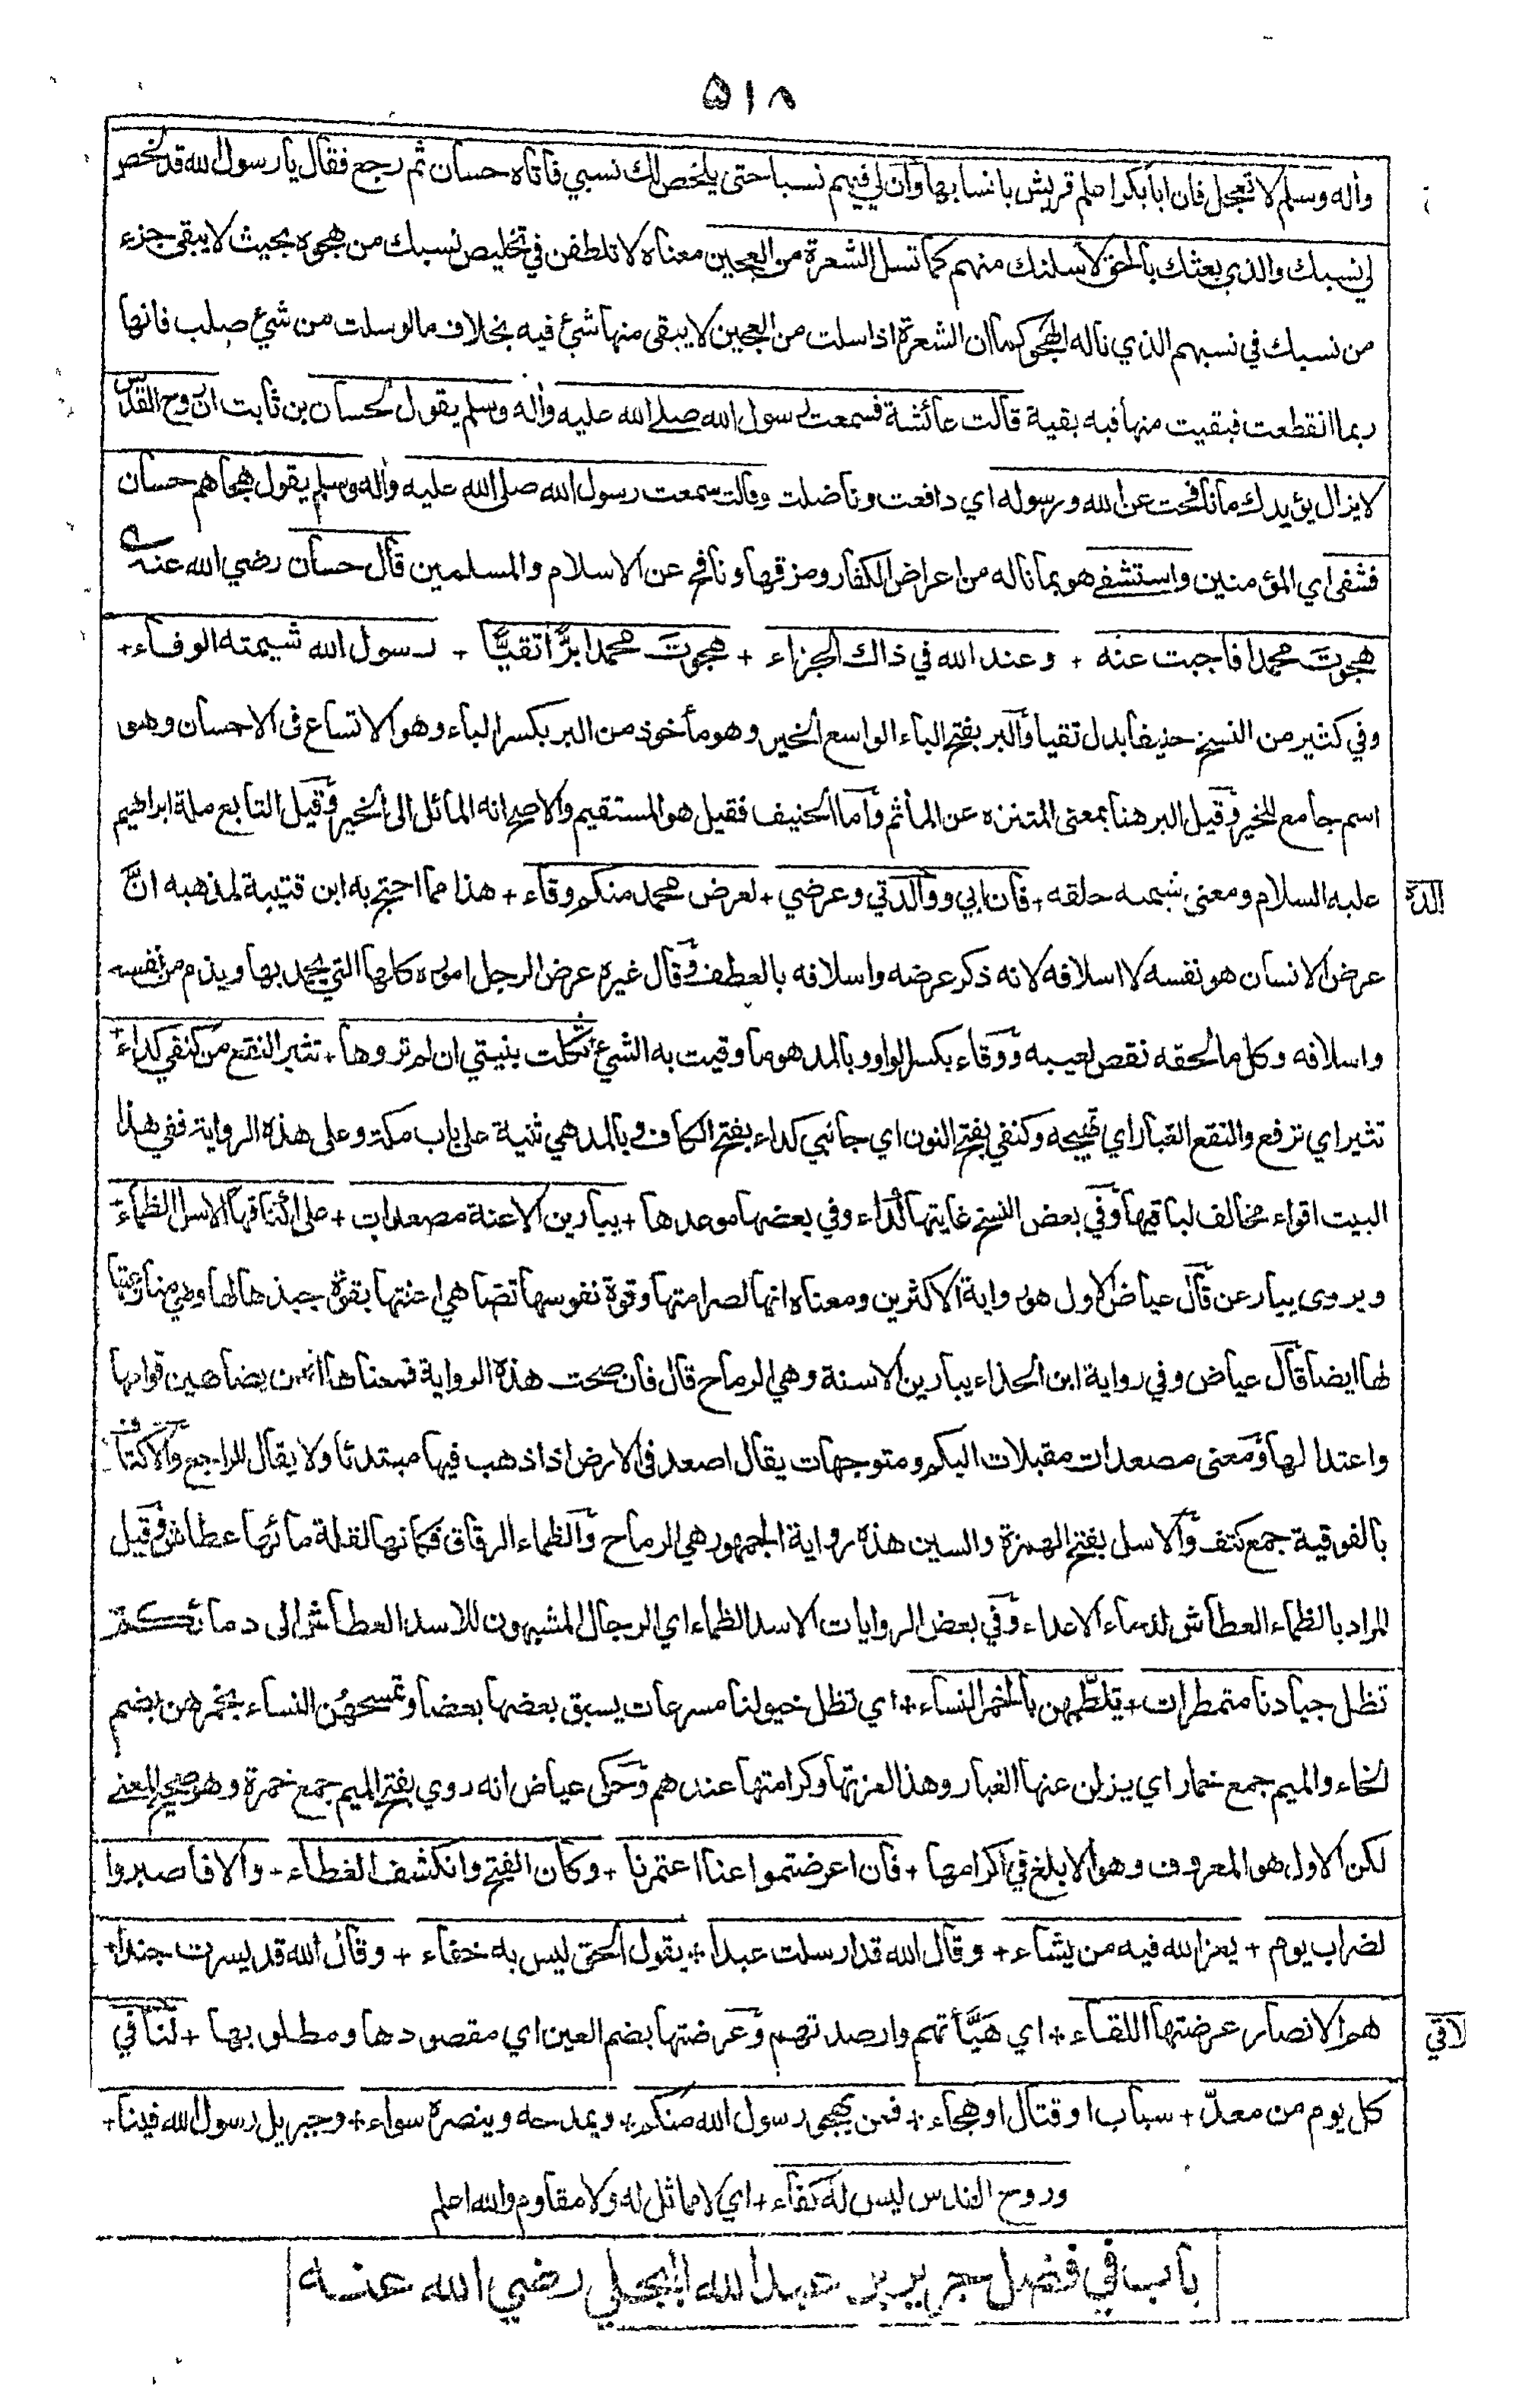 ٥١٨
وأله وسلم لا تعجل فان ابا بكر اعلم قريش بانسابها وأن لي فيهم نسبا حتى يلخص لك نسبي فاتاه حسان ثم رجع فقال يا رسول الله قد لخص
لي نسبك والذي بعثك بالحق لأسلنك منهم كما تسل الشعرة من العجين معناه لا تلطفن في تخليص نسبك من هجوه بحيث لا يبقى جزء
من نسبك في نسبهم الذي ناله الهجو كما ان الشعرة اذا سلت من العجين لا يبقى منها شئ فيه بخلاف ما لو سلت من شئ صلب فانها
ربما انقطعت فبقيت منها فيه بقية قالت عائشة فسمعت رسول الله صلى الله عليه وأله وسلم يقول لحسان بن ثابت ان روح القدس
لا يزال يؤيدك ما نافحت عن الله ورسوله اي دافعت وناضلت وقالت سمعت رسول الله صلى الله عليه وأله وسلم يقول هجاهم حسان
فشفى اي المؤمنين واستشفى هو بما ناله من اعراض الكفار ومزقها ونافح عن الاسلام والمسلمين قال حسان رضي الله عنه
هجوتَ محمدا فاجبت عنه + وعند الله في ذاك الجزاء + هجوتَ محمدا برًّا تقيًّا + رسول الله شيمته الوفاء +
وفي كثير من النسخ حنيفا بدل تقيا والبر بفتح الباء الواسع الخير وهو مأخوذ من البر بكسر الباء وهو الاتساع في الاحسان وهو
اسم جامع للخير وقيل البر هنا بمعنى المتنزه عن المأثم وأما الحنيف فقيل هو المستقيم والاصح انه المائل الى الخير وقيل التابع ملة ابراهيم
عليه السلام ومعنى شيمته خلقه + فان ابي ووالدتي وعرضي + لعرض محمد منكم وقاء + هذا مما احتج به ابن قتيبة لمذهبه انَّ
الدة
عرض الانسان هو نفسه لا اسلافه لانه ذكر عرضه واسلافه بالعطف وقال غيره عرض الرجل اموره كلها التي يحمد بها ويذم من نفسه
واسلافه وكل ما لحقه نقص لعيبه ووقاء بكسر الواو وبالمد هو ما وقيت به الشئ + ثكلت بنيتي ان لم تروها + تثير النقع من كنفي كداء +
تثير اي ترفع والنقع الغبار اي تهيجه وكنفي بفتح النون اي جانبي كداء بفتح الكاف وبالمد هي ثنية على باب مكة وعلى هذه الرواية ففي هذا
البيت اقواء مخالف لباقيها وفي بعض النسخ غايتها كداء وفي بعضها موعدها + يبارين الاعنة مصعدات + على اكتافها الاسل الظماء +
ويروى يبارعن قال عياض الاول هو رواية الاكثرين ومعناه انها لصرامتها وقوة نفوسها تضاهي اعنتها بقوة جبذها لها وهي منازعتها
لها ايضا قال عياض وفي رواية ابن الحذاء يبارين الاسنة وهي الرماح قال فان صحت هذه الرواية فمعناها انهن يضاهين قوامها
واعتدالها ومعنى مصعدات مقبلات اليكم ومتوجهات يقال اصعد في الارض اذا ذهب فيها مبتدئا ولا يقال للراجع والاكتاف
بالفوقية جمع كتف والاسل بفتح الهمزة والسين هذه رواية الجمهور هي الرماح والظماء الرقاق فكانها لقلة مائها عطاش وقيل
المراد بالظماء العطاش لدماء الاعداء وفي بعض الروايات الاسد الظماء اي الرجال المشبهون للاسد العطاش الى دمائكم
تظل جيادنا متمطرات + يلطّمهن بالخمر النساء + اي تظل خيولنا مسرعات يسبق بعضها بعضا وتمسحهُن النساء بخمرهن بضم
الخاء والميم جمع خمار اي يزلن عنها الغبار وهذا لعزتها وكرامتها عندهم وحكى عياض انه روي بفتح الميم جمع خمرة وهو صحيح المعنى
لكن الاول هو المعروف وهو الابلغ في اكرامها + فان اعرضتموا عنا اعتمرنا + وكان الفتح وانكشف الغطاء + والا فاصبروا
لضراب يوم + يعز الله فيه من يشاء + وقال الله قد ارسلت عبدا + يقول الحق ليس به خفاء + وقال الله قد يسرت جندا +
هم الانصار عرضتها اللقاء + اي هَيَّأتهم وارصدتهم وعرضتها بضم العين اي مقصودها ومطلوبها + لنا في
لاقي
كل يوم من معدّ + سباب او قتال او هجاء + فمن يهجو رسول الله منكم + ويمدحه وينصره سواء + وجبريل رسول الله فينا +
وروح القدس ليس له كفاء + اي لا مماثل له ولا مقاوم والله اعلم
باب في فضل جرير بن عبد الله البجلي رضي الله عنه